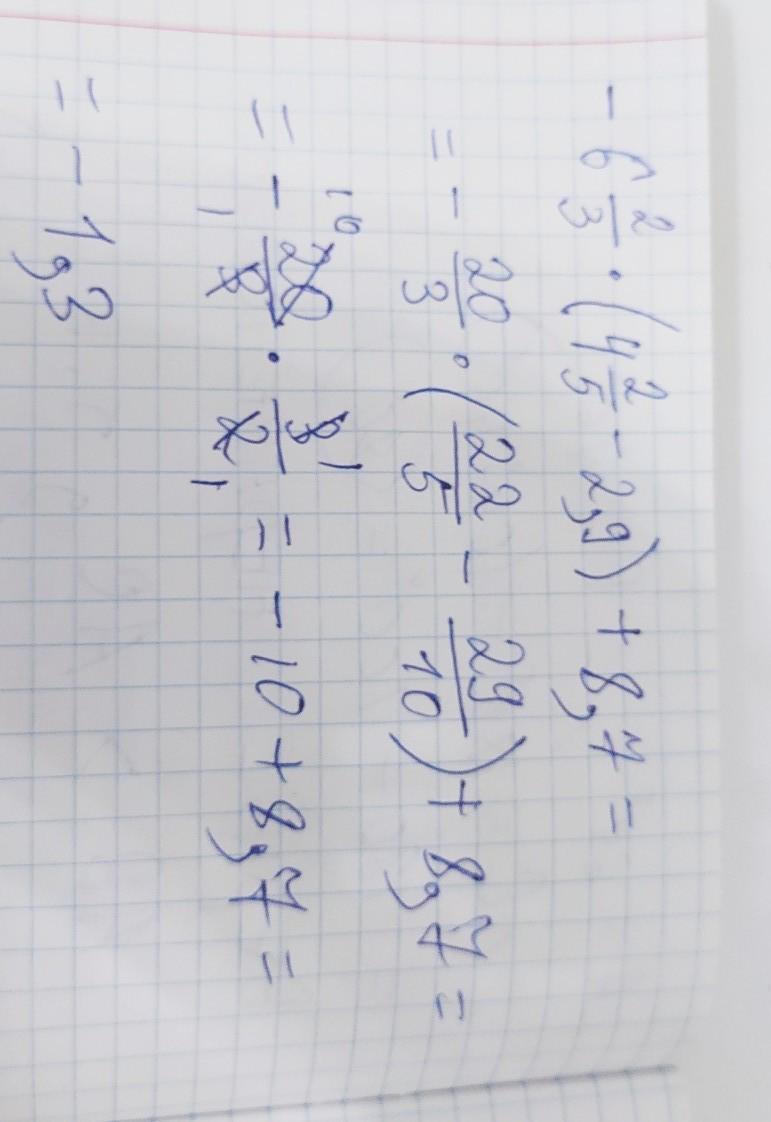 - 6 2/3 · (4 2/5 - 2,9) + 8,7 =
= - 20/3 · (22/5 - 29/10) + 8,7 =
= - 20/3 · 3/2 = - 10 + 8,7 =
= - 1,3